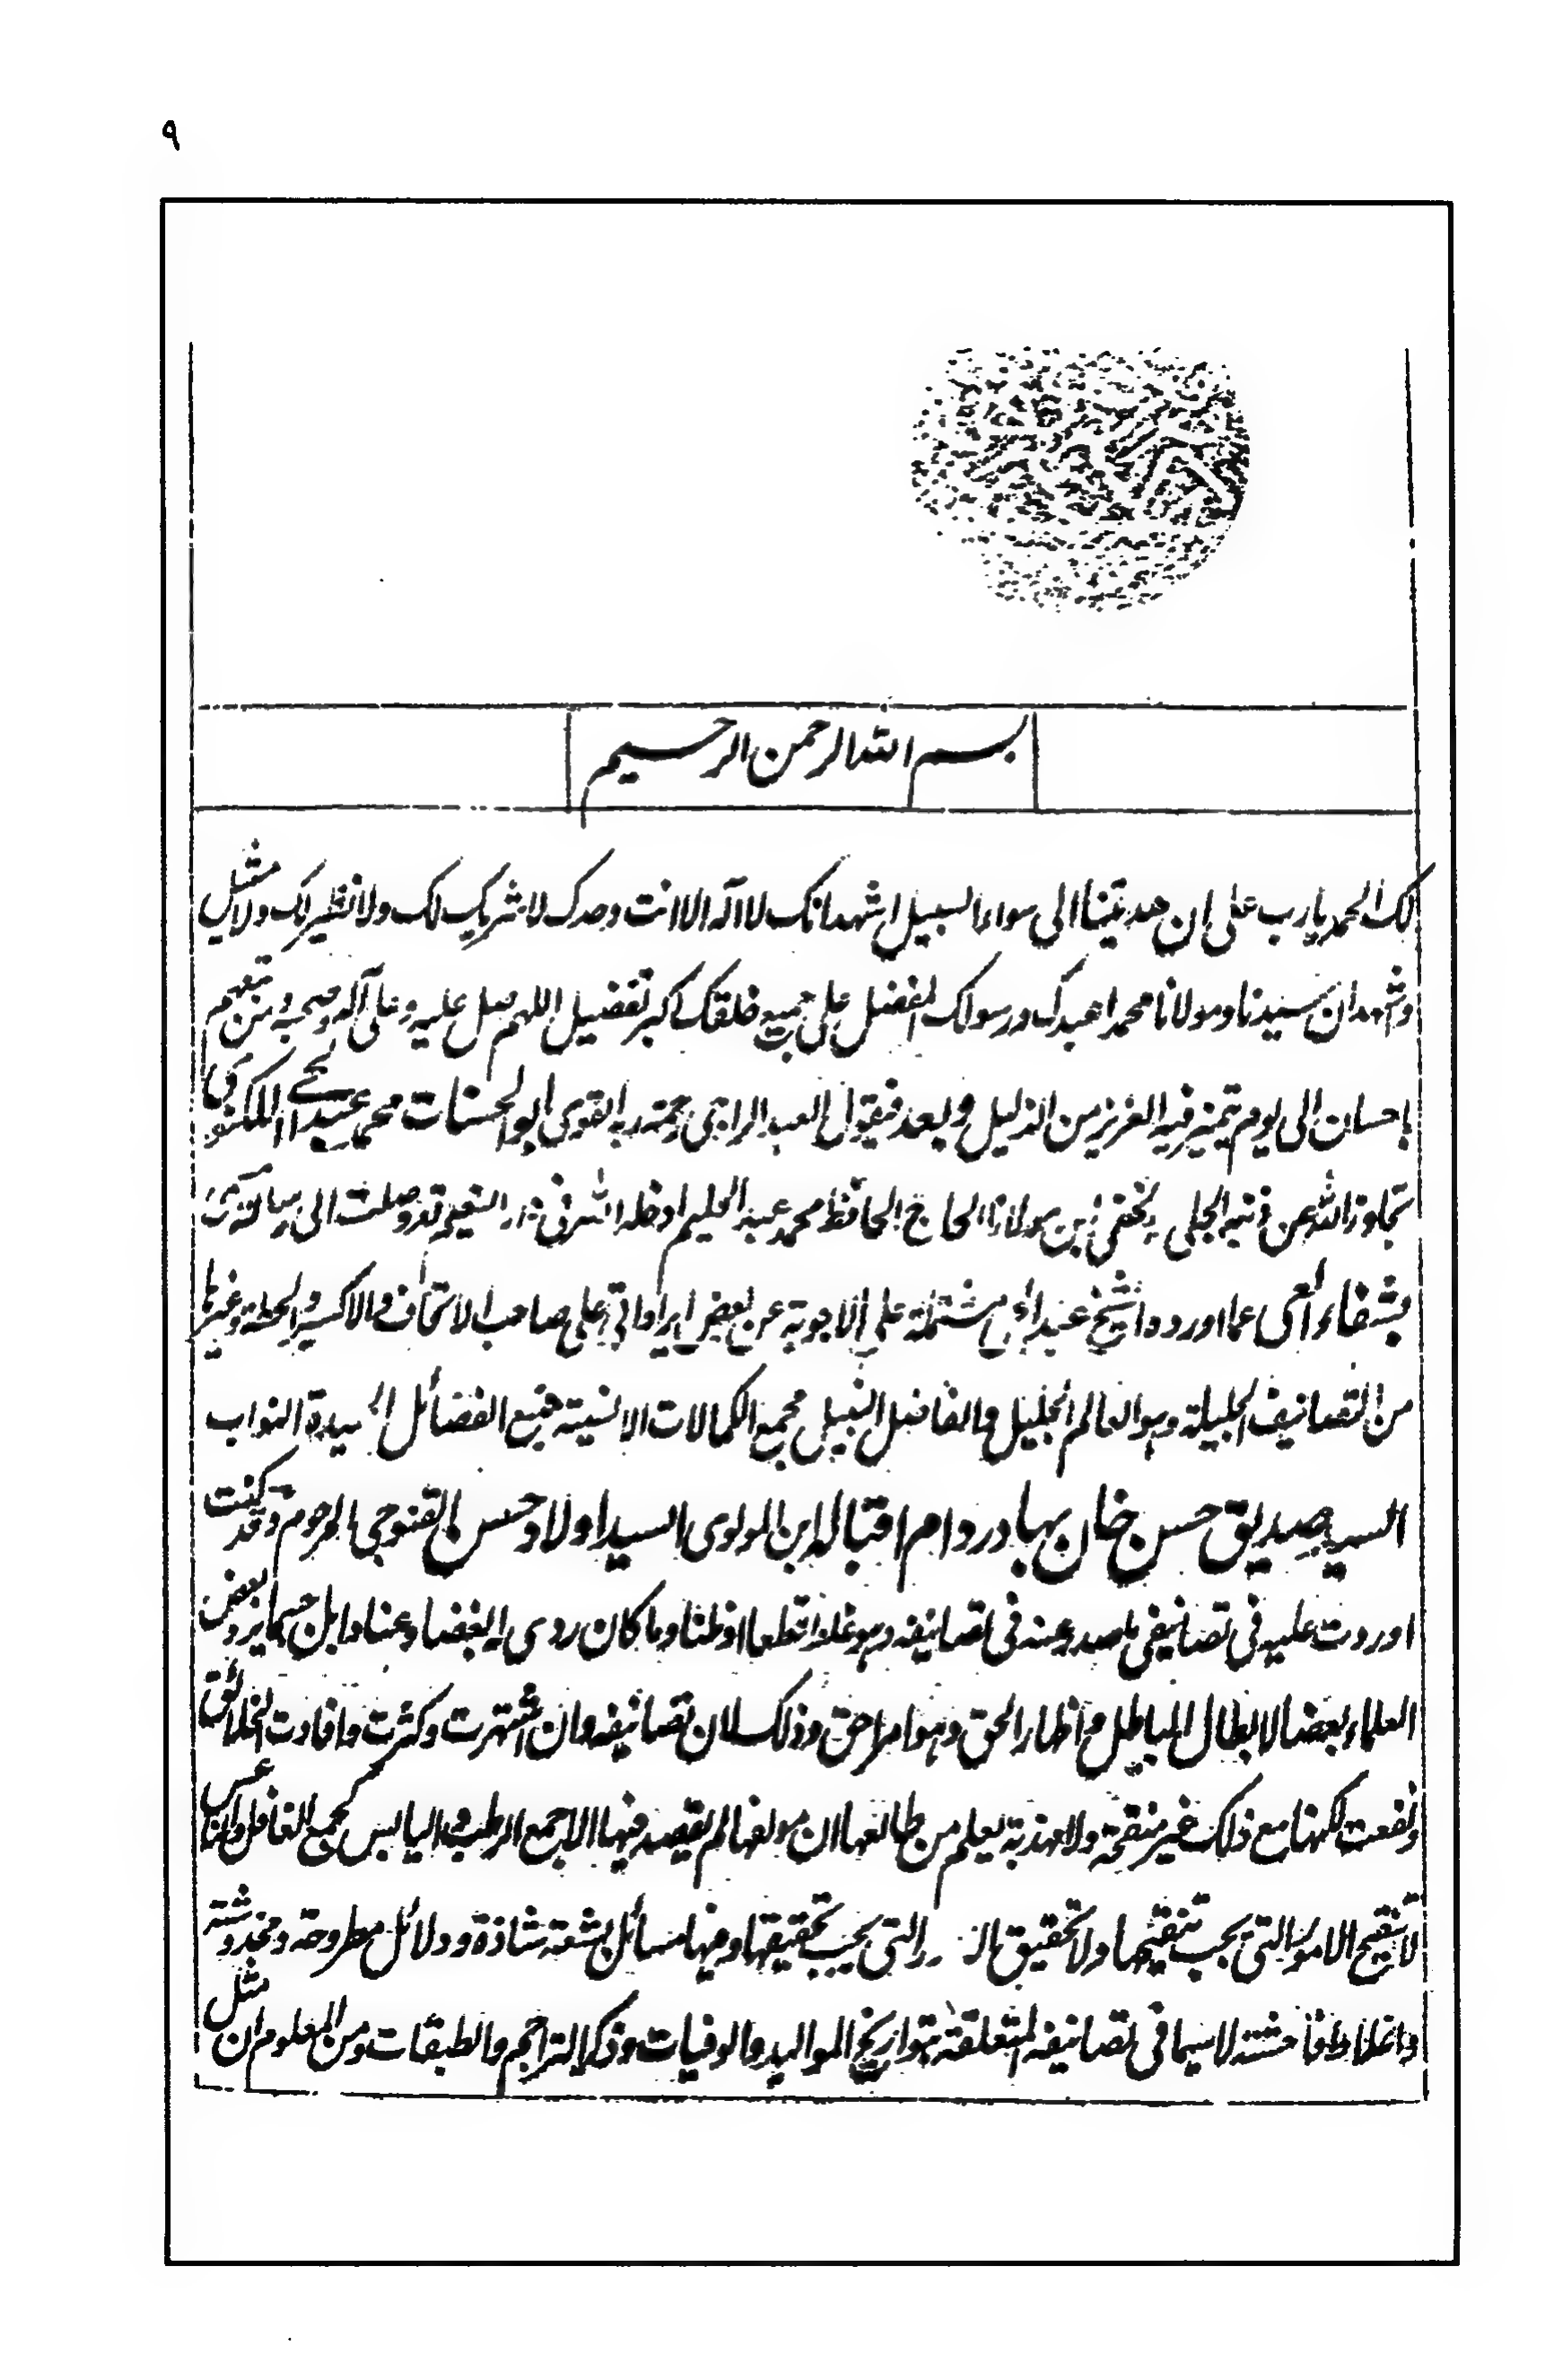 ٩
بسم الله الرحمن الرحيم
لك الحمد يا رب على ان هديتنا الى سواء السبيل اشهد انك لا اله الا انت وحدك لا شريك لك ولا نظير لك ولا مثيل
واشهد ان سيدنا ومولانا محمدا عبدك ورسولك المفضل على جميع خلقك اكبر تفضيل اللهم صل عليه وعلى آله وصحبه ومن تبعهم
باحسان الى يوم يتميز فيه العزيز من الذليل وبعد فيقول العبد الراجي رحمة ربه القوى ابو الحسنات محمد عبد الحي اللكنوي
تجاوز الله عن ذنبه الجلى والخفي ابن مولانا الحاج الحافظ محمد عبد الحليم ادخله الله في دار النعيم قد وصلت الى رسالة
بشفاء العى عما اورده الشيخ عبد الحي مشتملة على الاجوبة عن بعض ايراداتي على صاحب الاتحاف والاكسير والحطة وغيرها
من التصانيف الجليلة وهو العالم الجليل والفاضل النبيل مجمع الكمالات الانسية منبع الفضائل النواب
السيد صديق حسن خان بهادر دام اقباله ابن المولوى السيد اولاد حسن القنوجي المرحوم وقد كنت
اوردت عليه في تصانيفي ما صدر عنه في تصانيفه وهو غلط قطعا او ظنا وما كان ردى اياه بغضا وعنادا بل حسبما يرد بعض
العلماء بعضا لابطال الباطل واظهار الحق وهو امر احق وذلك لان تصانيفه وان اشتهرت وكثرت وافادت الخلائق
ونفعت لكنها مع ذلك غير منقحة ولا مهذبة يعلم من طالعها ان مولفها لم يقصد فيها الا جمع الرطب واليابس كجمع الغافل والناعس
لا تنقيح الامور التي يجب تنقيحها ولا تحقيق التي يجب تحقيقها وفيها مسائل بشعة شاذة ودلائل مطروحة ومخدوشة
واغلاط فاحشة لا سيما في تصانيفه المتعلقة بتواريخ المواليد والوفيات وذكر التراجم والطبقات ومن المعلوم ان مثل